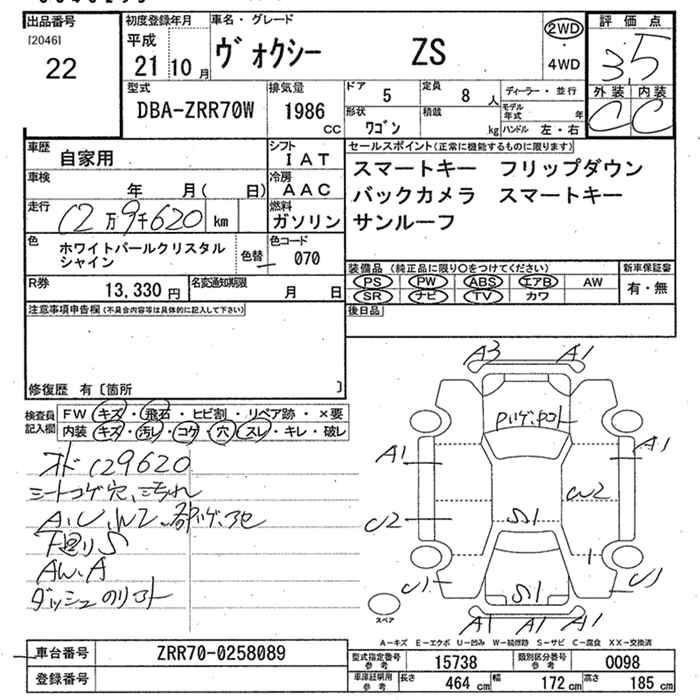 出品番号
[2046]
22
初度登録年月
平成
21 10 月
車名・グレード
ヴォクシー ZS
2WD
・
4WD
評価点
3.5
外装 内装
C C
型式
DBA-ZRR70W
排気量
1986
CC
ドア
5
定員
8 人
形状
ワゴン
積載
kg
ディーラー・並行
モデル年式 年
ハンドル 左・右
車歴
自家用
シフト
IAT
車検
年 月( 日)
冷房
AAC
走行
12万9千620 km
燃料
ガソリン
色
ホワイトパールクリスタル
シャイン
色替
色コード
070
R券
13,330 円
名変通知期限
月 日
セールスポイント(正常に機能するものに限ります)
スマートキー フリップダウン
バックカメラ スマートキー
サンルーフ
装備品(純正品に限り○をつけてください)
PS PW ABS エアB AW
SR ナビ TV カワ
新車保証書
有・無
後日品
注意事項申告欄(不具合内容等は具体的に記入して下さい)
修復歴 有〔箇所 〕
検査員
記入欄
FW キズ・飛石・ヒビ割・リペア跡・×要
内装 キズ・汚レ・コゲ・穴・スレ・キレ・破レ
オド129620
シートコゲ穴、汚れ
A、U、W2、
下廻りS
AW、A
ダッシュ
A3 A1
A1 A1
U2 W2
S1
1
U1 U1
S1
A1 A1 A1
スペア
A-キズ E-エクボ U-凹み W-補修跡 S-サビ C-腐食 XX-交換済
車台番号
ZRR70-0258089
登録番号
型式指定番号
参考
15738
類別区分番号
参考
0098
車庫証明用
参考
長さ 464 cm 幅 172 cm 高さ 185 cm